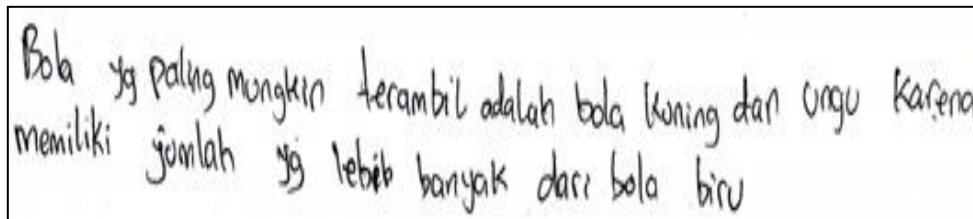 Bola yg paling mungkin terambil adalah bola kuning dan ungu karena
memiliki jumlah yg lebih banyak dari bola biru